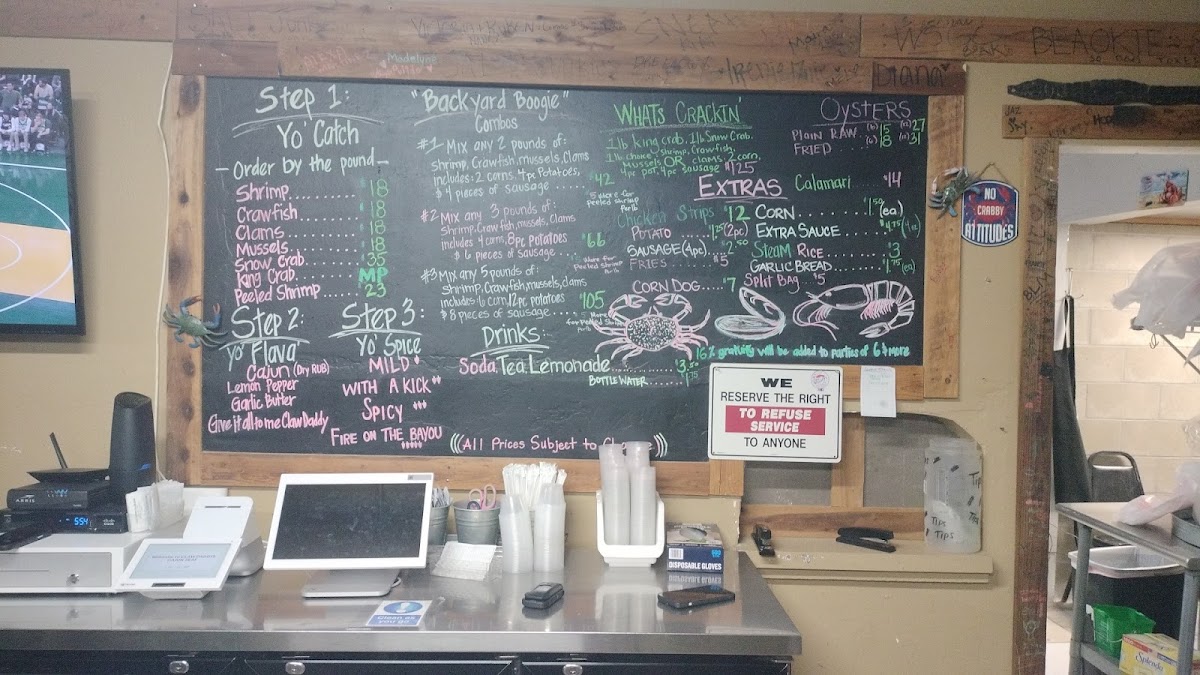 Step 1:
Yo' Catch
- Order by the pound -
Shrimp.......... $18
Crawfish........ 18
Clams........... 18
Mussels......... 18
Snow Crab....... 35
King Crab....... MP
Peeled Shrimp... $23
Step 2:
Yo' Flava
Cajun (Dry RUB)
Lemon Pepper
Garlic Butter
Give it all to me Claw Daddy
Step 3:
Yo' Spice
MILD
WITH A KICK
SPICY
FIRE ON THE BAYOU
"Backyard Boogie"
Combos
#1 Mix any 2 pounds of:
shrimp, Crawfish, mussels, Clams
includes: 2 corns, 4pc Potatoes,
& 4 pieces of sausage ..... $42
$5 More for
peeled shrimp
#2 Mix any 3 pounds of:
Shrimp, Crawfish, mussels, Clams
includes 4 corn, 8pc potatoes
& 6 pieces of Sausage ..... $66
More for
Peeled Shrimp
#3 Mix any 5 pounds of:
shrimp, Crawfish, mussels, clams
includes 16 corn, 12pc potatoes
& 8 pieces of sausage ..... $105
More
for peeled Shrimp
Drinks:
Soda, Tea, Lemonade........ $3.50
BOTTLE WATER........ $1.75
((All Prices Subject to
WHATS CRACKIN'
1lb King crab, 1lb Snow Crab,
1lb choice of shrimp, Crawfish,
Mussels OR clams, 2 corn,
4pc pot, 4pc sausage $125
OYSTERS
PLAIN RAW (6) 15 (12) 27
FRIED (6) 18 (12) 31
EXTRAS
Calamari ..... $14
Chicken Strips $12
POTATO ..... $1.25 (2pc)
SAUSAGE (4pc) .. $2.50
FRIES ..... $5
CORN DOG.... $7
CORN ........ $1.50 (ea)
EXTRA SAUCE..... $4.75 (4oz)
Steam RICE....... $3
GARLIC BREAD....... $1.75 (ea)
Split Bag .. $5
16% gratuity will be added to parties of 6 & more
WE
RESERVE THE RIGHT
TO REFUSE
SERVICE
TO ANYONE
NO
CRABBY
ATTITUDES
Madelynn
Diana
BLACKIE
TIPS
Tips
ARRIS
554
DISPOSABLE GLOVES
Splenda